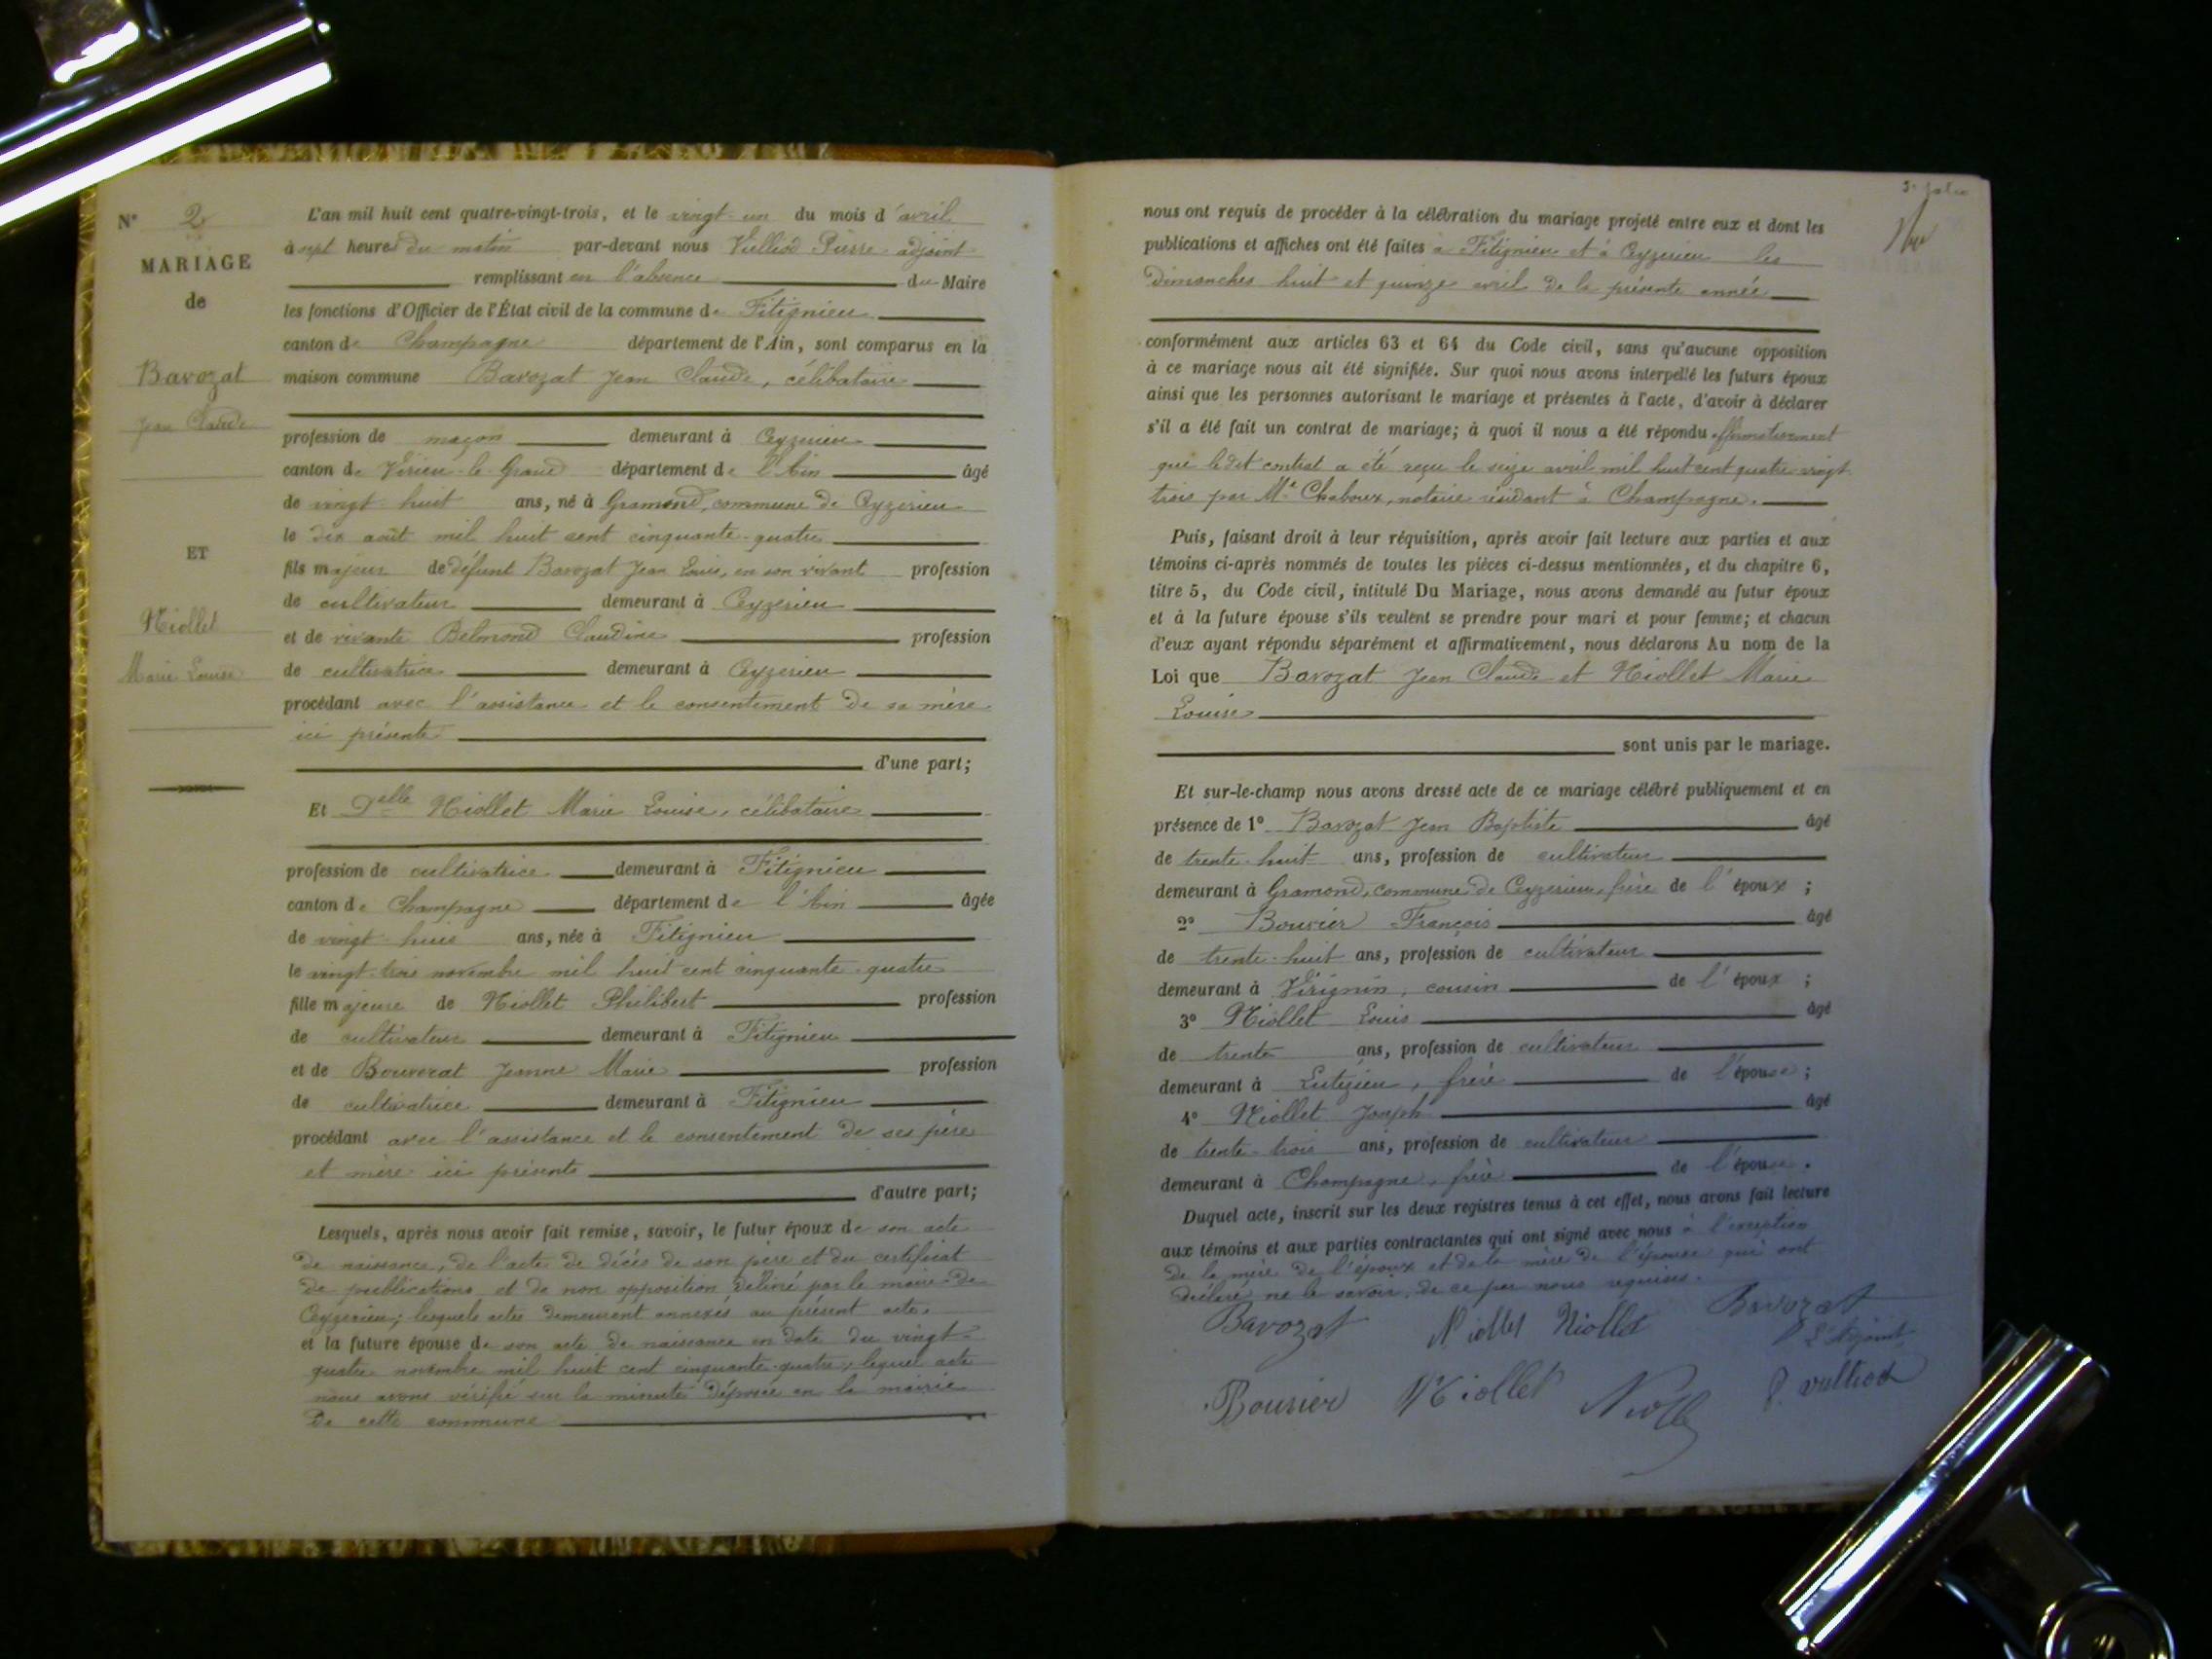 N° 2
MARIAGE
de
Bavozat
Jean Claude
ET
Niollet
Marie Louise
L'an mil huit cent quatre-vingt-trois, et le vingt-un du mois d'avril
à sept heures du matin par-devant nous Vulliod Pierre adjoint
remplissant en l'absence du Maire
les fonctions d'Officier de l'État civil de la commune de Fitignieu
canton de Champagne département de l'Ain, sont comparus en la
maison commune Bavozat Jean Claude, célibataire
profession de maçon demeurant à Ceyzerieu
canton de Virieu-le-Grand département de l'Ain âgé
de vingt-huit ans, né à Gramond, commune de Ceyzerieu
le dix août mil huit cent cinquante-quatre
fils majeur de défunt Bavozat Jean Louis, en son vivant profession
de cultivateur demeurant à Ceyzerieu
et de vivante Belmond Claudine profession
de cultivatrice demeurant à Ceyzerieu
procédant avec l'assistance et le consentement de sa mère
ici présente
d'une part;
Et Delle Niollet Marie Louise, célibataire
profession de cultivatrice demeurant à Fitignieu
canton de Champagne département de l'Ain âgée
de vingt-huit ans, née à Fitignieu
le vingt-trois novembre mil huit cent cinquante-quatre
fille majeure de Niollet Philibert profession
de cultivateur demeurant à Fitignieu
et de Bouverat Jeanne Marie profession
de cultivatrice demeurant à Fitignieu
procédant avec l'assistance et le consentement de ses père
et mère ici présents
d'autre part;
Lesquels, après nous avoir fait remise, savoir, le futur époux de son acte
de naissance, de l'acte de décès de son père et du certificat
de publications et de non opposition délivré par le maire de
Ceyzerieu; lesquels actes demeurent annexés au présent acte.
et la future épouse de son acte de naissance en date du vingt-
quatre novembre mil huit cent cinquante-quatre, lequel acte
nous avons vérifié sur la minute déposée en la mairie
de cette commune
nous ont requis de procéder à la célébration du mariage projeté entre eux et dont les
publications et affiches ont été faites à Fitignieu et à Ceyzerieu les
dimanches huit et quinze avril de la présente année
conformément aux articles 63 et 64 du Code civil, sans qu'aucune opposition
à ce mariage nous ait été signifiée. Sur quoi nous avons interpellé les futurs époux
ainsi que les personnes autorisant le mariage et présentes à l'acte, d'avoir à déclarer
s'il a été fait un contrat de mariage; à quoi il nous a été répondu affirmativement
que ledit contrat a été reçu le seize avril mil huit cent quatre-vingt-
trois par Me Chaboux, notaire résidant à Champagne.
Puis, faisant droit à leur réquisition, après avoir fait lecture aux parties et aux
témoins ci-après nommés de toutes les pièces ci-dessus mentionnées, et du chapitre 6,
titre 5, du Code civil, intitulé Du Mariage, nous avons demandé au futur époux
et à la future épouse s'ils veulent se prendre pour mari et pour femme; et chacun
d'eux ayant répondu séparément et affirmativement, nous déclarons Au nom de la
Loi que Bavozat Jean Claude et Niollet Marie
Louise
sont unis par le mariage.
Et sur-le-champ nous avons dressé acte de ce mariage célébré publiquement et en
présence de 1° Bavozat Jean Baptiste âgé
de trente-huit ans, profession de cultivateur
demeurant à Gramond, commune de Ceyzerieu, frère de l'époux;
2° Bouvier François âgé
de trente-huit ans, profession de cultivateur
demeurant à Virignin, cousin de l'époux;
3° Niollet Louis âgé
de trente ans, profession de cultivateur
demeurant à Lutézieu, frère de l'épouse;
4° Niollet Joseph âgé
de trente-trois ans, profession de cultivateur
demeurant à Champagne, frère de l'épouse.
Duquel acte, inscrit sur les deux registres tenus à cet effet, nous avons fait lecture
aux témoins et aux parties contractantes qui ont signé avec nous à l'exception
de la mère de l'époux et de la mère de l'épouse qui ont
déclaré ne le savoir, de ce par nous requises.
Bavozat Niollet Niollet Bavozat
L'adjoint
Bouvier Niollet P. vulliod